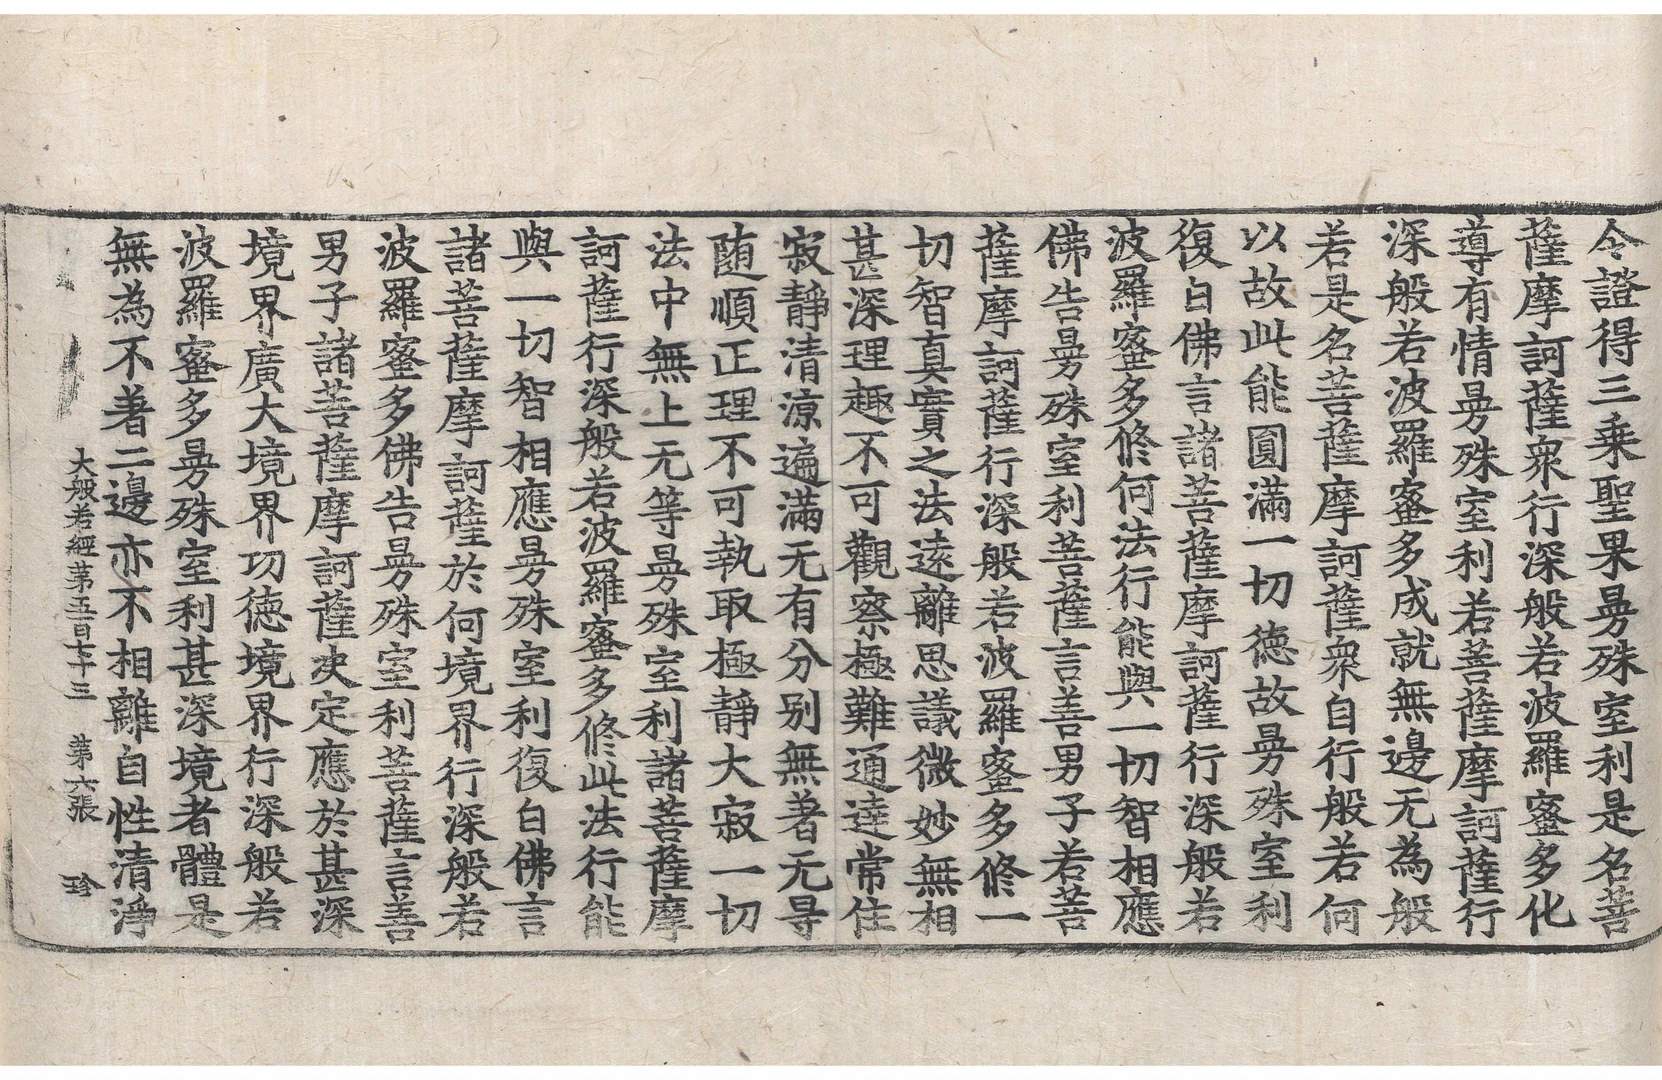 令證得三乘聖果曼殊室利是名菩
薩摩訶薩衆行深般若波羅蜜多化
導有情曼殊室利若菩薩摩訶薩行
深般若波羅蜜多成就無邊无為般
若是名菩薩摩訶薩衆自行般若何
以故此能圓滿一切德故曼殊室利
復白佛言諸菩薩摩訶薩行深般若
波羅蜜多修何法行能與一切智相應
佛告曼殊室利菩薩言善男子若菩
薩摩訶薩行深般若波羅蜜多修一
切智真實之法遠離思議微妙無相
甚深理趣不可觀察極難通達常住
寂靜清涼遍滿无有分別無著无㝵
随順正理不可執取極靜大寂一切
法中無上无等曼殊室利諸菩薩摩
訶薩行深般若波羅蜜多修此法行能
與一切智相應曼殊室利復白佛言
諸菩薩摩訶薩於何境界行深般若
波羅蜜多佛告曼殊室利菩薩言善
男子諸菩薩摩訶薩決定應於甚深
境界廣大境界功德境界行深般若
波羅蜜多曼殊室利甚深境者體是
無為不著二邊亦不相離自性清淨
大般若經第五百七十三 第六張 珍